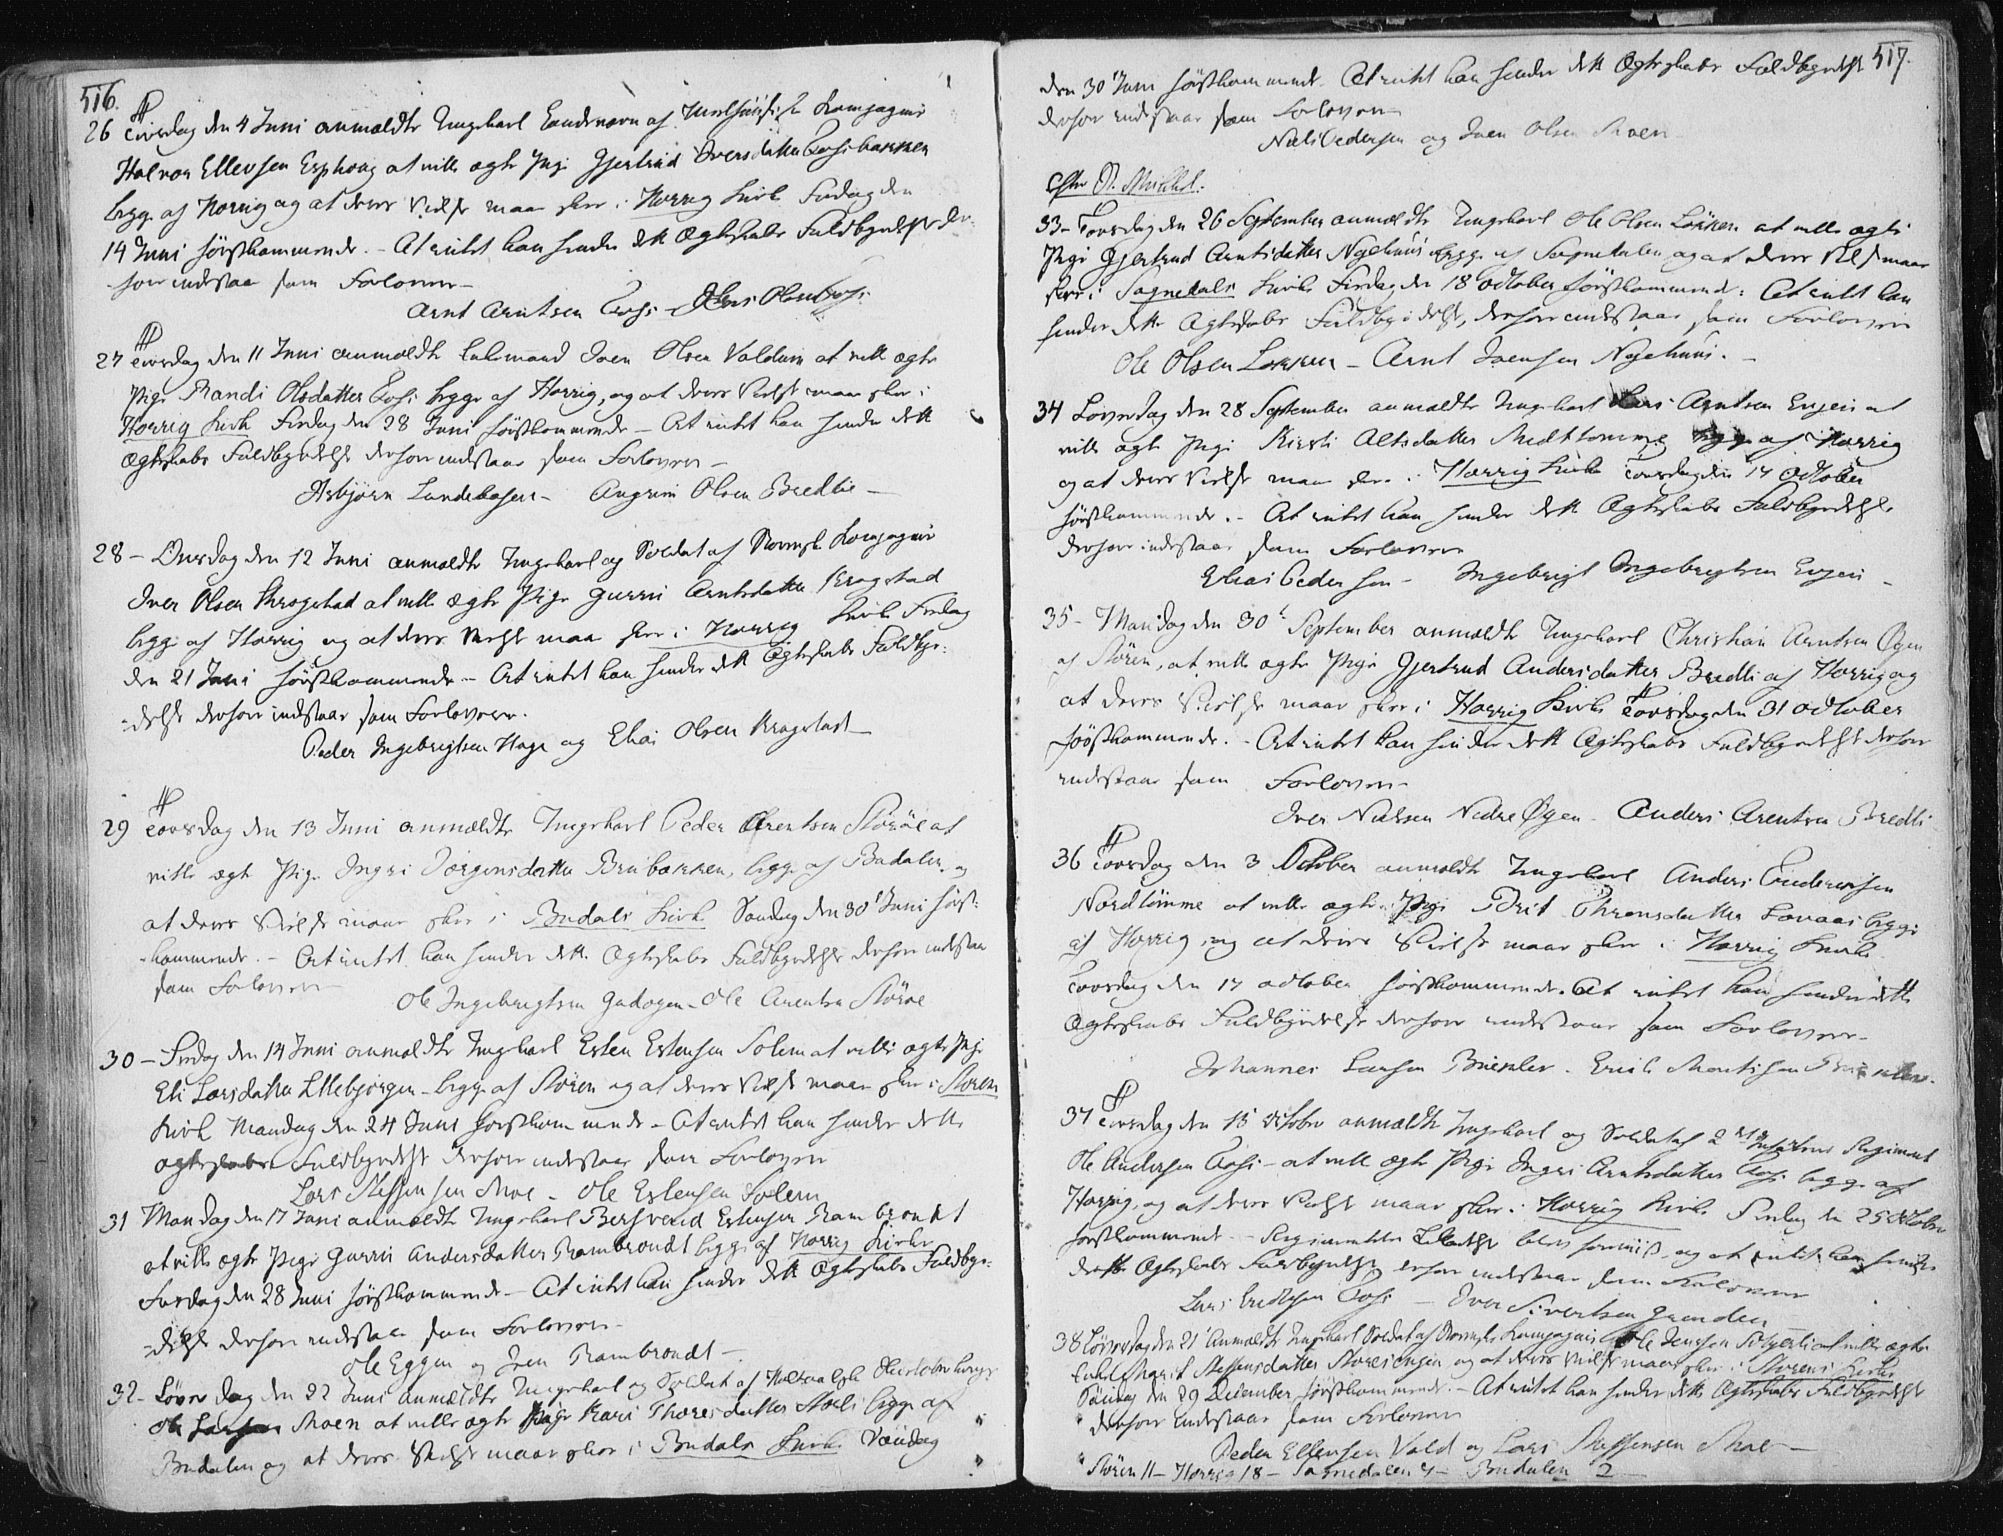 516.
26 Tirsdag den 4 Juni anmældte Ungekarl Landeværn af Kompagnie
Halvor Ellevsen Esphaag at ville ægte Pige Gjertrud Iversdatter Rosbakken
begge af Horrig og at deres Vielse maa skee i Horrig Kirke Fredag den
14 Juni førstkommende. – At intet kan hindre dette Ægteskabs Fuldbyrdelse der-
for indestaa som Forlovere –
Arnt Arntsen Ross – Olsen Ross
27 Tirsdag den 11 Juni anmældte Enkemand Joen Olsen Valdum at ville ægte
Pige Randi Olsdatter Ross begge af Horrig, og at deres Vielse maa skee i
Horrig Kirke Fredag den 28 Juni førstkommende – At intet kan hindre dette
Ægteskabs Fuldbyrdelse derfor indestaa som Forlovere –
Asbjørn Lundebosen – Angrim Olsen Bredlie –
28 – Onsdag den 12 Juni anmældte Ungekarl og Soldat af Størenske Kompagnie
Iver Olsen Krogstad at ville ægte Pige Gurru Arntsdatter Krogstad
begge af Horrig og at deres Vielse maa skee i Horrig Kirke Fredag
den 21 Juni førstkommende – At intet kan hindre dette Ægteskabs Fuldbyr-
delse derfor indestaar som Forlovere.
Peder Ingebrigtsen Hage og Elias Olsen Krogstad –
29 Torsdag den 13 Juni anmældte Ungekarl Peder Arentsen Storøe at
ville ægte Pige Ingri Jørgensdatter Brubakken, begge af Budalen og
at deres Vielse maae skee i Budals Kirke Søndag den 30te Juni først-
kommende. – At intet kan hindre dette Ægteskabs Fuldbyrdelse derfor indestaa
som Forlovere –
Ole Ingebrigtsen Gadogen – Ole Arentsen Storøe
30 – Fredag den 14 Juni anmældte Ungekarl Esten Estensen Solem at ville ægte Pige
Eli Larsdatter Ellebjørgen – begge af Støren og at deres Vielse maae skee i Størens
Kirke Mandag den 24 Juni førstkommende – At intet kan hindre dette
Ægteskabs Fuldbyrdelse derfor indestaa som Forlovere
Lars Steffensen Moe – Ole Estensen Solem
31 Mandag den 17 Juni anmældte Ungekarl Bersvend Estensen Rambrondt
at ville ægte Pige Gurru Andersdatter Rambrondt begge af Horrig Kirke
Fredag den 28 Juni førstkommende – At intet kan hindre dette Ægteskabs Fuldbyr-
delse derfor indestaa som Forlovere –
Ole Eggen og Joen Rambrondt –
32 – Løverdag den 22 Juni anmældte Ungekarl og Soldat af
Ole Larsen Moen at ville ægte Pige Kari Thoresdatter Moeli begge af
Budalen og at deres Vielse maae skee i Budals Kirke Søndag
517.
den 30te Juni førstkommende. At intet kan hindre dette Ægteskabs Fuldbyrdelse
derfor indestaar som Forlovere –
Niels Pedersen og Joen Olsen Moen –
Efter St. Mikkel.
33 – Torsdag den 26 September anmældte Ungekarl Ole Olsen Løkken at ville ægte
Pige Gjertrud Arntsdatter Nyehuus begge af Sognedalen og at deres Vielse maae
skee i Sognedals Kirke Fredag den 18 October førstkommende: At intet kan
hindre dette Ægteskabs Fuldbyrdelse, derfor indestaar som Forlovere
Ole Olsen Løkken – Arnt Joensen Nyehuus. –
34 Løverdag den 28 September anmældte Ungekarl Lars Arntsen Engen at
ville ægte Pige Kirsti Altsdatter Midtlømme begge af Horrig
og at deres Vielse maae skee i Horrig Kirke Torsdag den 17 October
førstkommende. – At intet kan hindre dette Ægteskabs Fuldbyrdelse.
derfor indestaar som Forlovere
Elias Pedersen – Ingebrigt Ingebrigtsen Engen –
35 – Mandag den 30te September anmældte Ungekarl Christian Arntsen Øyen
af Støren, at ville ægte Pige Gjertrud Andersdatter Bredli af Horrig og
at deres Vielse maae skee i Horrig Kirke Torsdag den 31 October
førstkommende. – At intet kan hindre dette Ægteskabs Fuldbyrdelse derfor
indestaar som Forlovere –
Iver Nielsen Nedre Øyen – Anders Arentsen Bredli
36 Torsdag den 3 October anmældte Ungekarl Anders
Nordlømme at ville ægte Pige Berit Ehrensdatter Lovaas begge
af Horrig, og at deres Vielse maae skee i Horrig Kirke.
Torsdag den 17 October førstkommende. At intet kan hindre dette
Ægteskabs Fuldbyrdelse derfor indestaar som Forlovere –
Johannes Larsen – Erich
37 Tirsdag den 15 October anmældte Ungekarl og Soldat af 2det Regiment
Ole Andersen Ross – at ville ægte Pige Ingri Arntsdatter Ross begge af
Horrig, og at deres Vielse maae skee i Horrig Kirke Fredag den 25 October
førstkommende – Regimentets Tilladelse blev foreviist, og at intet kan hindre
dette Ægteskabs Fuldbyrdelse derfor indestaar som Forlovere
Lars Erichsen Ross – Iver Sivertsen Grinden
38 Løverdag den 21de Anmældte Ungekarl Soldat af Størenske Kompagnie Ole Jensen at ville ægte
Enke Marit Steffensdatter Størens Engen og at deres Vielse maae skee i Størens Kirke
Søndag den 29 December førstkommende. – At intet kan hindre dette Ægteskabs Fuldbyrdelse
derfor indestaar som Forlovere
Peder Ellevsen Vold og Lars Steffensen Moe –
Støren 11 – Horrig 18 – Sognedalen 7 – Budalen 2